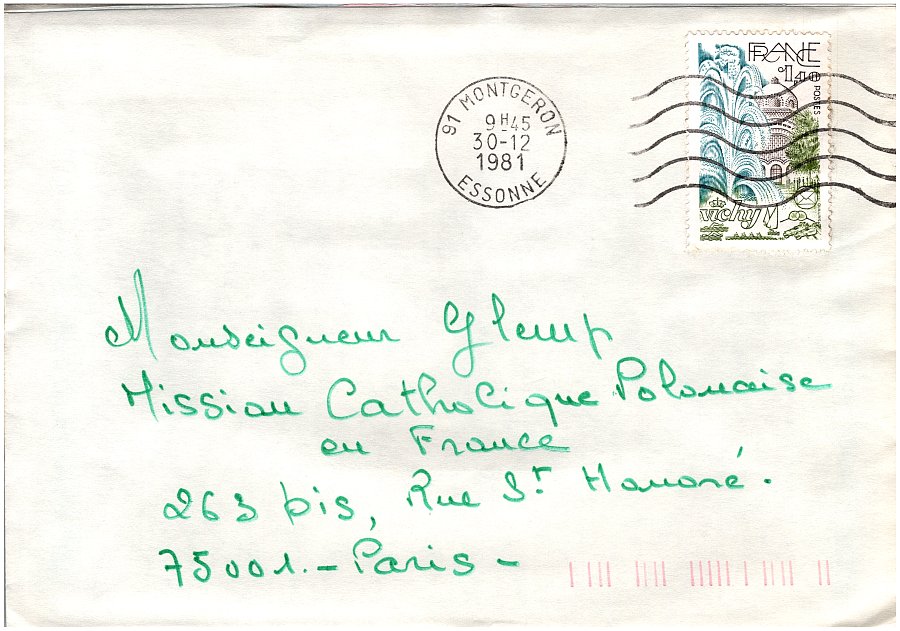 91 MONTGERON
9H45
30-12
1981
ESSONNE
FRANCE
1,40
POSTES
vichy
Monseigneur Glemp
Mission Catholique Polonaise
en France
263 bis, Rue St Honoré.
75001.- Paris -